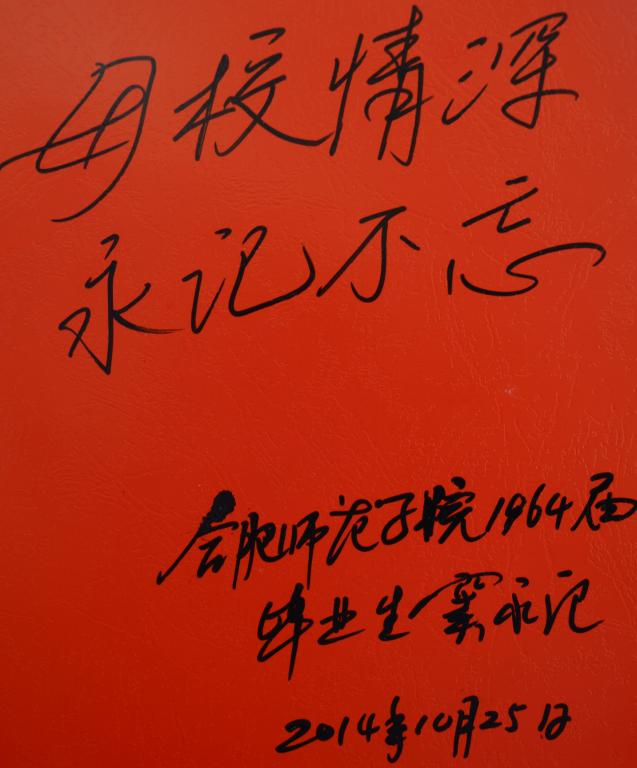 母校情深
永记不忘
合肥师范学院1964届
毕业生窦永记
2014年10月25日